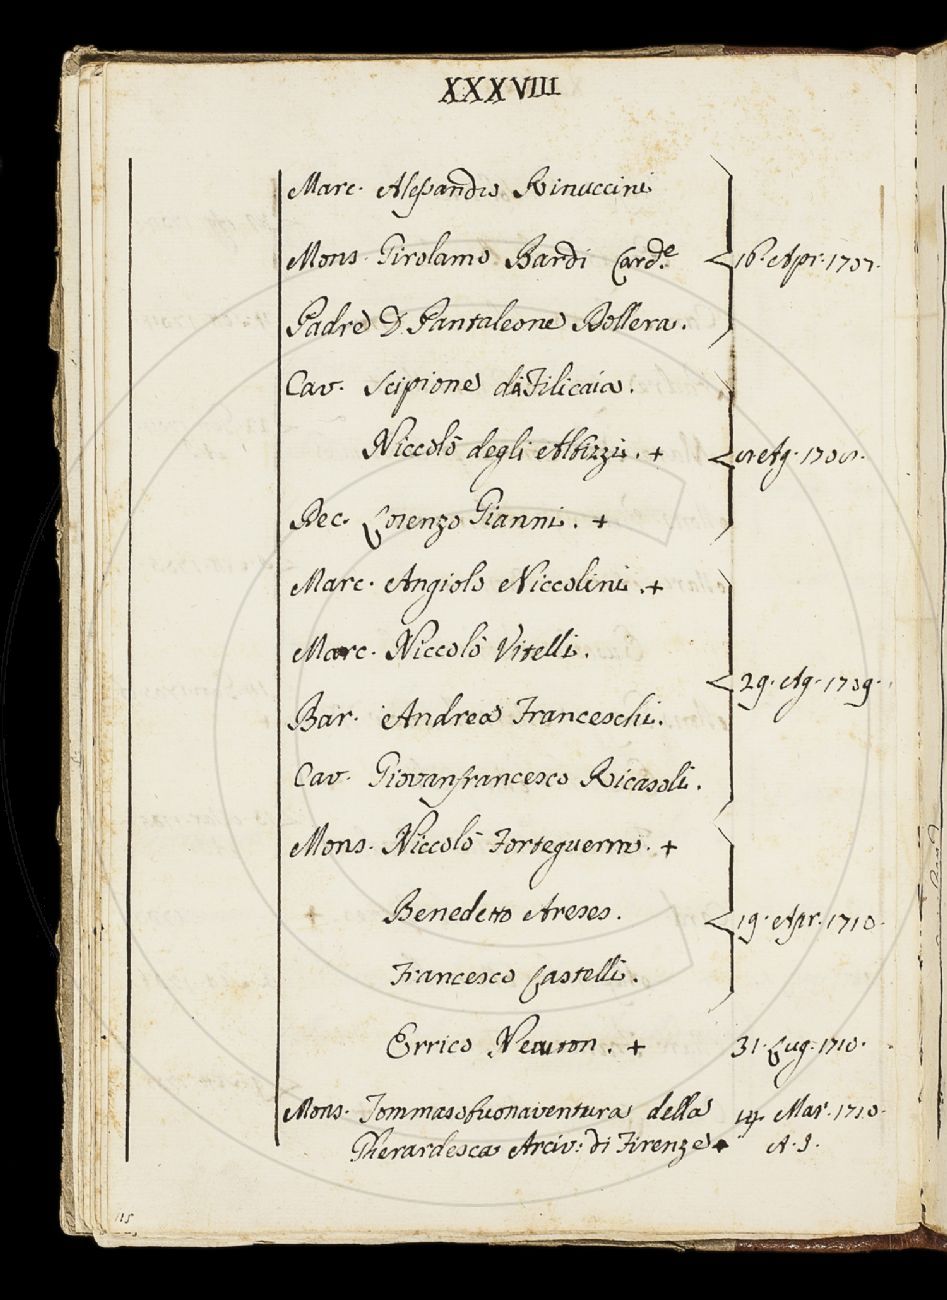 XXXVIII
Marc. Alessandro Rinuccini
Mons. Girolamo Bardi Card.e
16. Apr. 1707.
Padre D. Pantaleone Bollera.
Cav. Scipione di Filicaia.
Niccolò degli Albizzi. +
Ag. 1708.
Rec. Lorenzo Gianni. +
Marc. Angiolo Niccolini. +
Marc. Niccolò Vitelli.
29. Ag. 1709.
Bar. Andrea Franceschi.
Cav. Giovanfrancesco Ricasoli.
Mons. Niccolò Forteguerri. +
Benedetto Areses.
19. Apr. 1710.
Francesco Castelli.
Errico Neuton. + 31. Lug. 1710.
Mons. Tommasobuonaventura della 14. Mar. 1710.
Gherardesca Arciv: di Firenze + A. I.
115